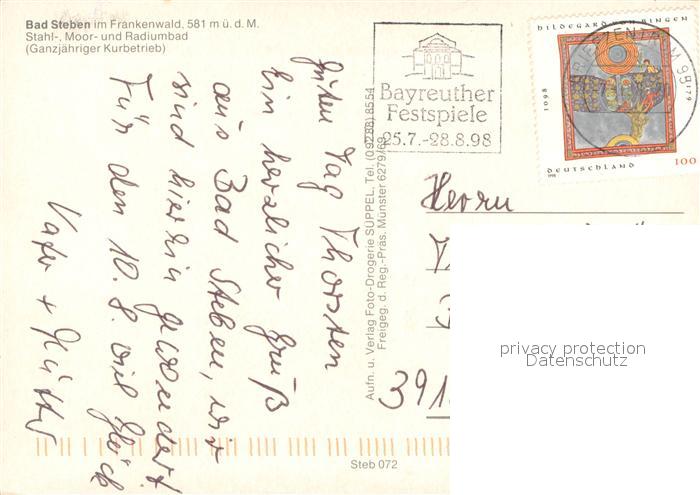 Bad Steben im Frankenwald, 581 m ü. d. M.
Stahl-, Moor- und Radiumbad
(Ganzjähriger Kurbetrieb)
Guten Tag Thorsten
Ein herzlicher Gruß
aus Bad Steben, wir
sind hierhin gewandert
Für den 10. 8 viel Glück
Vater + Mutter
Aufn. u. Verlag Foto-Drogerie SÜPPEL, Tel. (09288) 8554
Freigeg. d. Reg.-Präs. Münster 6279/69
Steb 072
Bayreuther
Festspiele
25.7.-28.8.98
HILDEGARD VON BINGEN
1098
1179
DEUTSCHLAND
1998
100
Herrn
391
privacy protection
Datenschutz